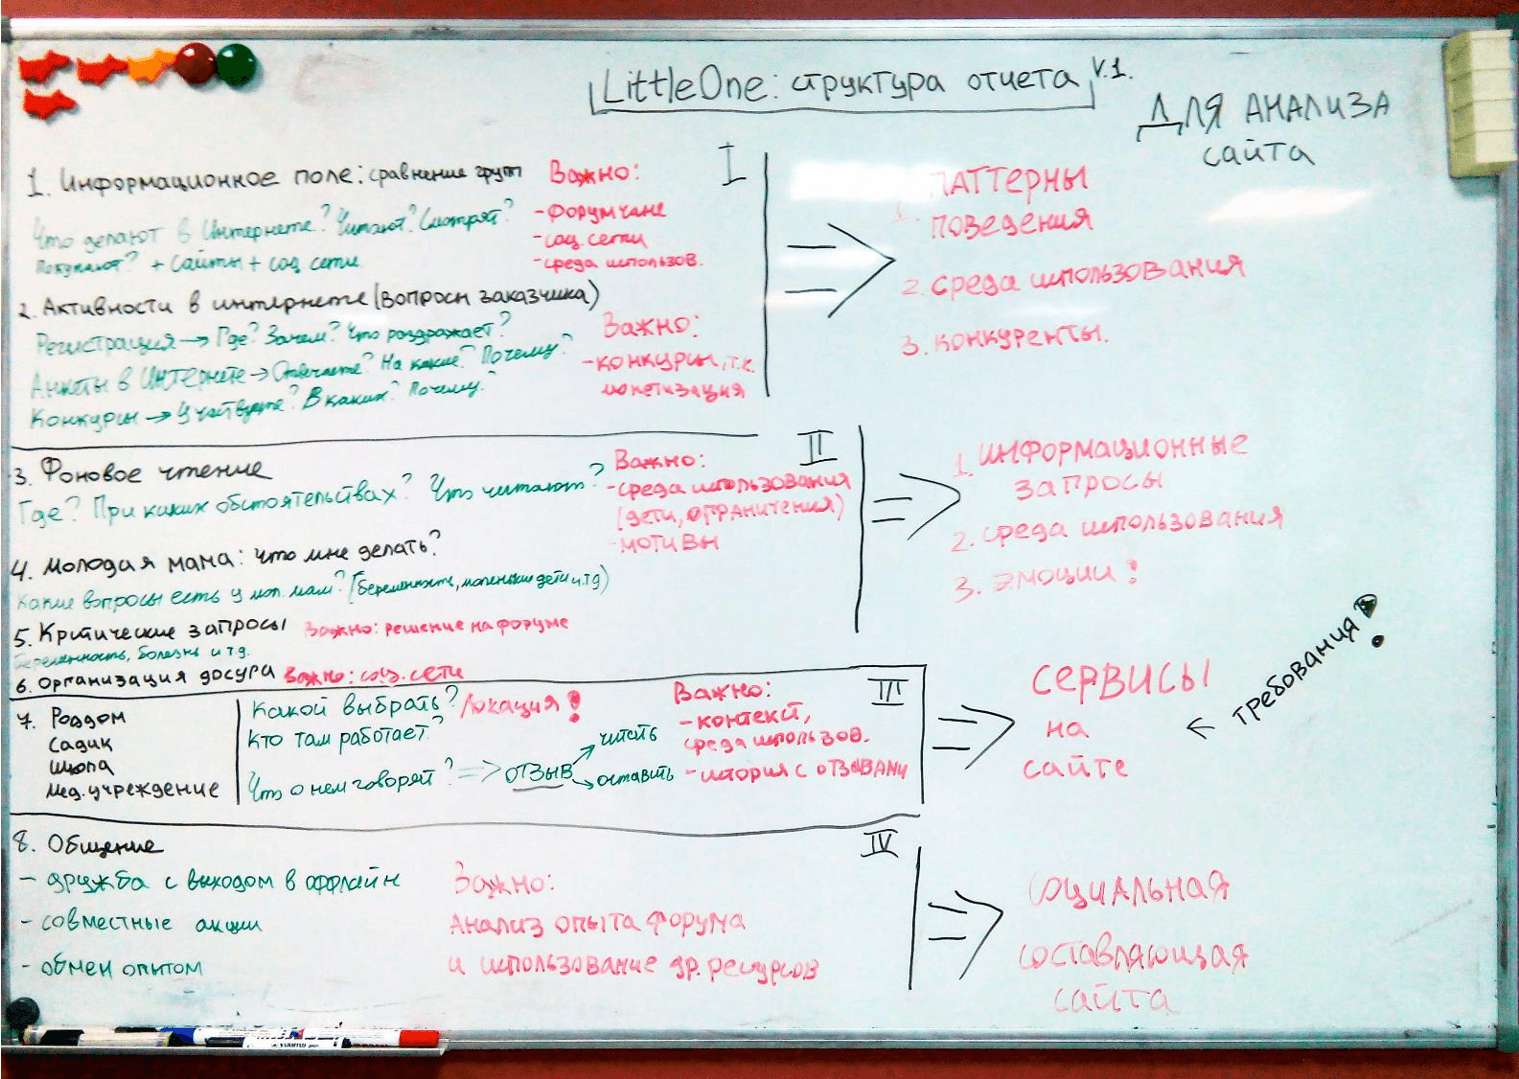 LittleOne: структура отчета v.1.
ДЛЯ АНАЛИЗА
сайта
I
1. Информационное поле: сравнение групп
Важно:
- форумчане
- соц. сети
- среда использов.
Что делают в Интернете? Читают? Смотрят?
Покупают? + сайты + соц сети
2. Активности в интернете (вопросы заказчика)
Регистрация → Где? Зачем? Что раздражает?
Анкеты в Интернете → Отвечаете? На какие? Почему?
Конкурсы → Участвуете? В каких? Почему?
Важно:
- конкурсы, т.к.
монетизация
1. ПАТТЕРНЫ
поведения
2. среда использования
3. конкуренты.
II
3. Фоновое чтение
Где? При каких обстоятельствах? Что читают?
Важно:
- среда использования
(дети, ограничения)
- мотивы
4. Молодая мама: что мне делать?
Какие вопросы есть у мол. мам? (Беременность, маленькие дети и т.д)
5. Критические запросы Важно: решение на форуме
Беременность, болезнь и т.д.
6. Организация досуга Важно: соц. сети
1. ИНФОРМАЦИОННЫЕ
запросы
2. среда использования
3. эмоции!
III
7. Роддом
Садик
Школа
Мед. учреждение
Какой выбрать? Локация!
Кто там работает?
Что о нем говорят? => ОТЗЫВ
→ читать
→ оставить
Важно:
- контекст,
среда использов.
- история с отзывами
СЕРВИСЫ
на
сайте
← требования!
IV
8. Общение
- дружба с выходом в оффлайн
- совместные акции
- обмен опытом
Важно:
Анализ опыта форума
и использование др. ресурсов
СОЦИАЛЬНАЯ
составляющая
сайта